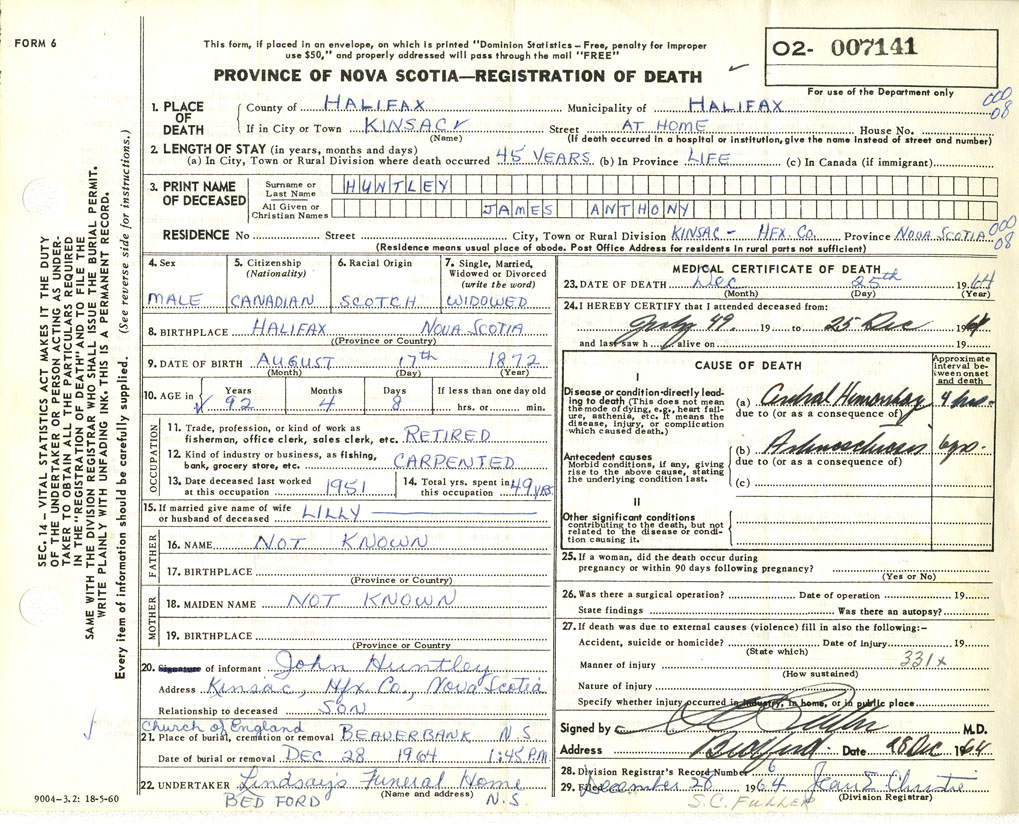 FORM 6
This form, if placed in an envelope, on which is printed "Dominion Statistics – Free, penalty for improper
use $50," and properly addressed will pass through the mail "FREE"
PROVINCE OF NOVA SCOTIA—REGISTRATION OF DEATH
02- 007141
For use of the Department only
000
08
SEC. 14 – VITAL STATISTICS ACT MAKES IT THE DUTY
OF THE UNDERTAKER OR PERSON ACTING AS UNDER-
TAKER TO OBTAIN ALL THE PARTICULARS REQUIRED
IN THE "REGISTRATION OF DEATH" AND TO FILE THE
SAME WITH THE DIVISION REGISTRAR WHO SHALL ISSUE THE BURIAL PERMIT.
WRITE PLAINLY WITH UNFADING INK. THIS IS A PERMANENT RECORD.
Every item of information should be carefully supplied. (See reverse side for instructions.)
1. PLACE OF DEATH
County of HALIFAX Municipality of HALIFAX
If in City or Town KINSAC Street AT HOME House No.
(Name) (If death occurred in a hospital or institution, give the name instead of street and number)
2. LENGTH OF STAY (in years, months and days)
(a) In City, Town or Rural Division where death occurred 45 YEARS (b) In Province LIFE (c) In Canada (if immigrant)
3. PRINT NAME OF DECEASED
Surname or Last Name HUNTLEY
All Given or Christian Names JAMES ANTHONY
RESIDENCE No Street City, Town or Rural Division KINSAC – HFX. CO. Province NOVA SCOTIA
000
08
(Residence means usual place of abode. Post Office Address for residents in rural parts not sufficient)
4. Sex
MALE
5. Citizenship
(Nationality)
CANADIAN
6. Racial Origin
SCOTCH
7. Single, Married,
Widowed or Divorced
(write the word)
WIDOWED
8. BIRTHPLACE HALIFAX NOVA SCOTIA
(Province or Country)
9. DATE OF BIRTH AUGUST 17th 1872
(Month) (Day) (Year)
10. AGE in Years Months Days If less than one day old
92 4 8 hrs. or min.
OCCUPATION
11. Trade, profession, or kind of work as
fisherman, office clerk, sales clerk, etc. RETIRED
12. Kind of industry or business, as fishing,
bank, grocery store, etc. CARPENTED
13. Date deceased last worked
at this occupation 1951
14. Total yrs. spent in
this occupation 49 YRS
15. If married give name of wife
or husband of deceased LILLY
FATHER
16. NAME NOT KNOWN
17. BIRTHPLACE
(Province or Country)
MOTHER
18. MAIDEN NAME NOT KNOWN
19. BIRTHPLACE
(Province or Country)
20. Signature of informant John Huntley
Address Kinsac, Hfx. Co., Nova Scotia
Relationship to deceased SON
Church of England
21. Place of burial, cremation or removal BEAVERBANK N.S.
Date of burial or removal DEC 28 1964 1:45 P.M.
22. UNDERTAKER Lindsay's Funeral Home
(Name and address)
BEDFORD N.S.
9004-3.2: 18-5-60
MEDICAL CERTIFICATE OF DEATH
23. DATE OF DEATH Dec 25th 1964
(Month) (Day) (Year)
24. I HEREBY CERTIFY that I attended deceased from:
July 49 19 to 25 Dec 1964
and last saw h alive on 19
CAUSE OF DEATH
Approximate
interval be-
tween onset
and death
I
Disease or condition directly lead-
ing to death (This does not mean
the mode of dying, e.g., heart fail-
ure, asthenia, etc. It means the
disease, injury, or complication
which caused death.)
(a) Cerebral Hemorrhage 4 hrs.
due to (or as a consequence of)
Antecedent causes
Morbid conditions, if any, giving
rise to the above cause, stating
the underlying condition last.
(b) Arteriosclerosis 6 yrs.
due to (or as a consequence of)
(c)
II
Other significant conditions
contributing to the death, but not
related to the disease or condi-
tion causing it.
25. If a woman, did the death occur during
pregnancy or within 90 days following pregnancy?
(Yes or No)
26. Was there a surgical operation? Date of operation 19
State findings Was there an autopsy?
27. If death was due to external causes (violence) fill in also the following:–
Accident, suicide or homicide? Date of injury 19
(State which)
Manner of injury 331x
(How sustained)
Nature of injury
Specify whether injury occurred in industry, in home, or in public place
Signed by M.D.
Address Bedford. Date 28 Dec 1964
28. Division Registrar's Record Number 6
29. Filed December 28 1964 Jean E Christie
(Division Registrar)
S.C. FULLER